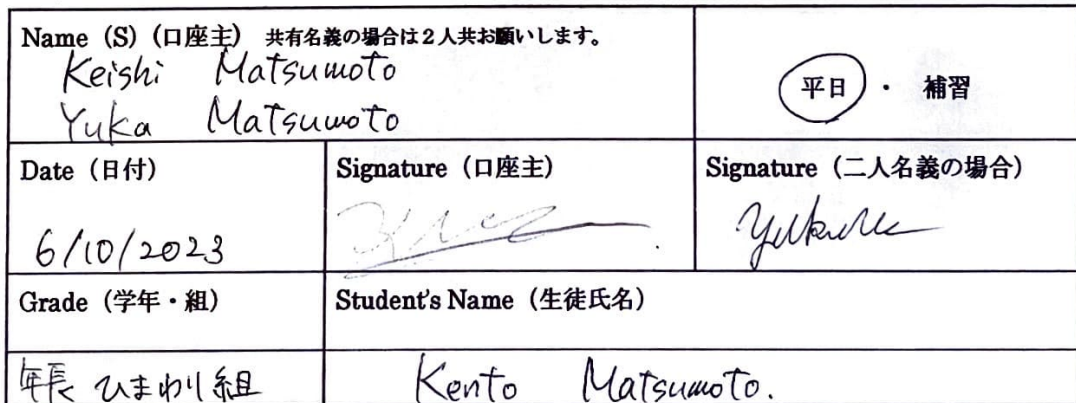 Name (S) (口座主) 共有名義の場合は2人共お願いします。
Keishi Matsumoto
Yuka Matsumoto
平日 ・ 補習
Date (日付)
6/10/2023
Signature (口座主)
Signature (二人名義の場合)
Grade (学年・組)
Student's Name (生徒氏名)
年長 ひまわり組
Kento Matsumoto.